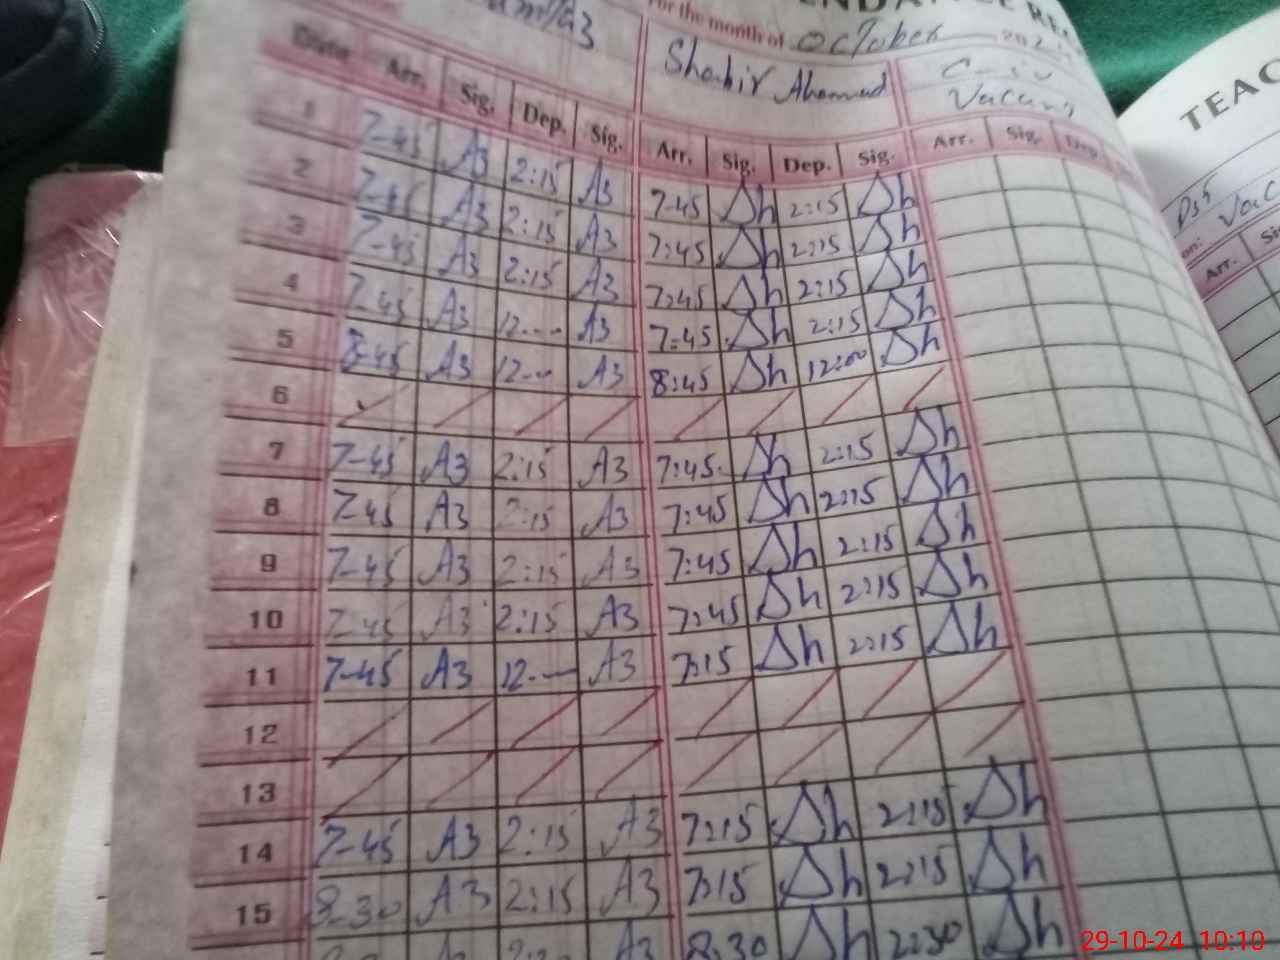 For the month of October 202
TEAC
Shabir Ahamad
Vacant
Date Arr. Sig. Dep. Sig. Arr. Sig. Dep. Sig. Arr. Sig. Dep.
Arr.
1 7-45 A3 2:15 A3 7-45 Δh 2:15 Δh
2 7-45 A3 2:15 A3 7:45 Δh 2:15 Δh
3 7-45 A3 2:15 A3 7:45 Δh 2:15 Δh
4 7-45 A3 12-- A3 7:45 Δh 2:15 Δh
5 8-45 A3 12-- A3 8:45 Δh 12:00 Δh
6
7 7-45 A3 2:15 A3 7:45 Δh 2:15 Δh
8 7-45 A3 2:15 A3 7:45 Δh 2:15 Δh
9 7-45 A3 2:15 A3 7:45 Δh 2:15 Δh
10 7-45 A3 2:15 A3 7:45 Δh 2:15 Δh
11 7-45 A3 12-- A3 7:15 Δh 2:15 Δh
12
13
14 7-45 A3 2:15 A3 7:15 Δh 2:15 Δh
15 8-30 A3 2:15 A3 7:15 Δh 2:15 Δh
A3 8:30 Δh 2:30 Δh
29-10-24 10:10